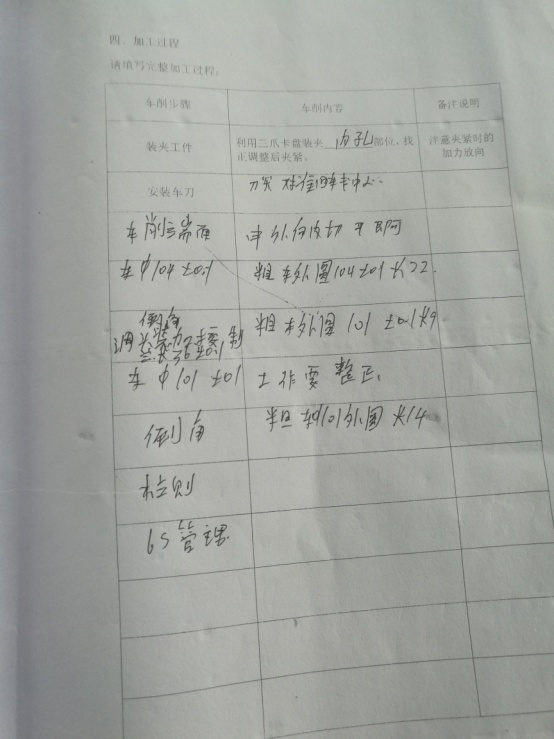 四、加工过程
请填写完整加工过程：
车削步骤 车削内容 备注说明
装夹工件 利用三爪卡盘装夹 内孔 部位，找正调整后夹紧。 注意夹紧时的加力放向
安装车刀 刀尖 对准 中心
车削端面 由外向内切 平即可
车φ104±0.1 粗车外圆104±0.1长22.
倒角 粗车外圆101±0.1长9
车φ101±0.1 工件要整正,
倒角 粗车101外圆长14
检测
6S管理